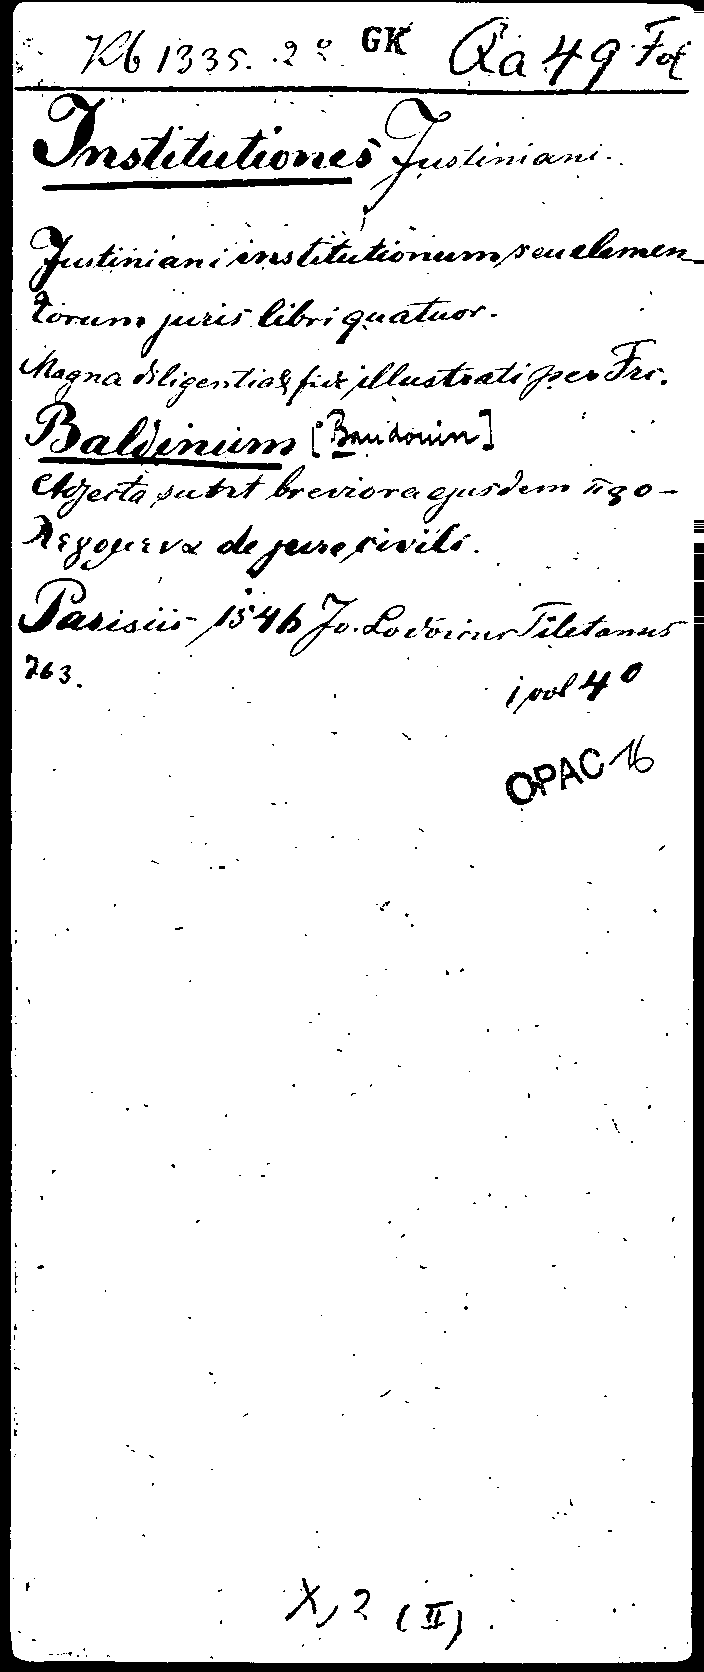 Kb 1335. 2° GK Qa 49 Fol
Institutiones Justiniani.
Justiniani institutionum seu elemen-
torum juris libri quatuor.
Magna diligentia & fide illustrati per Frc.
Baldinum [Baudouin]
Adjecta sunt breviora ejusdem προ-
λεγομενα de jure civili.
Parisiis 1546 Jo. Lodoicus Tiletanus
263.
1 vol 4°
OPAC 16
X, 2 (II)